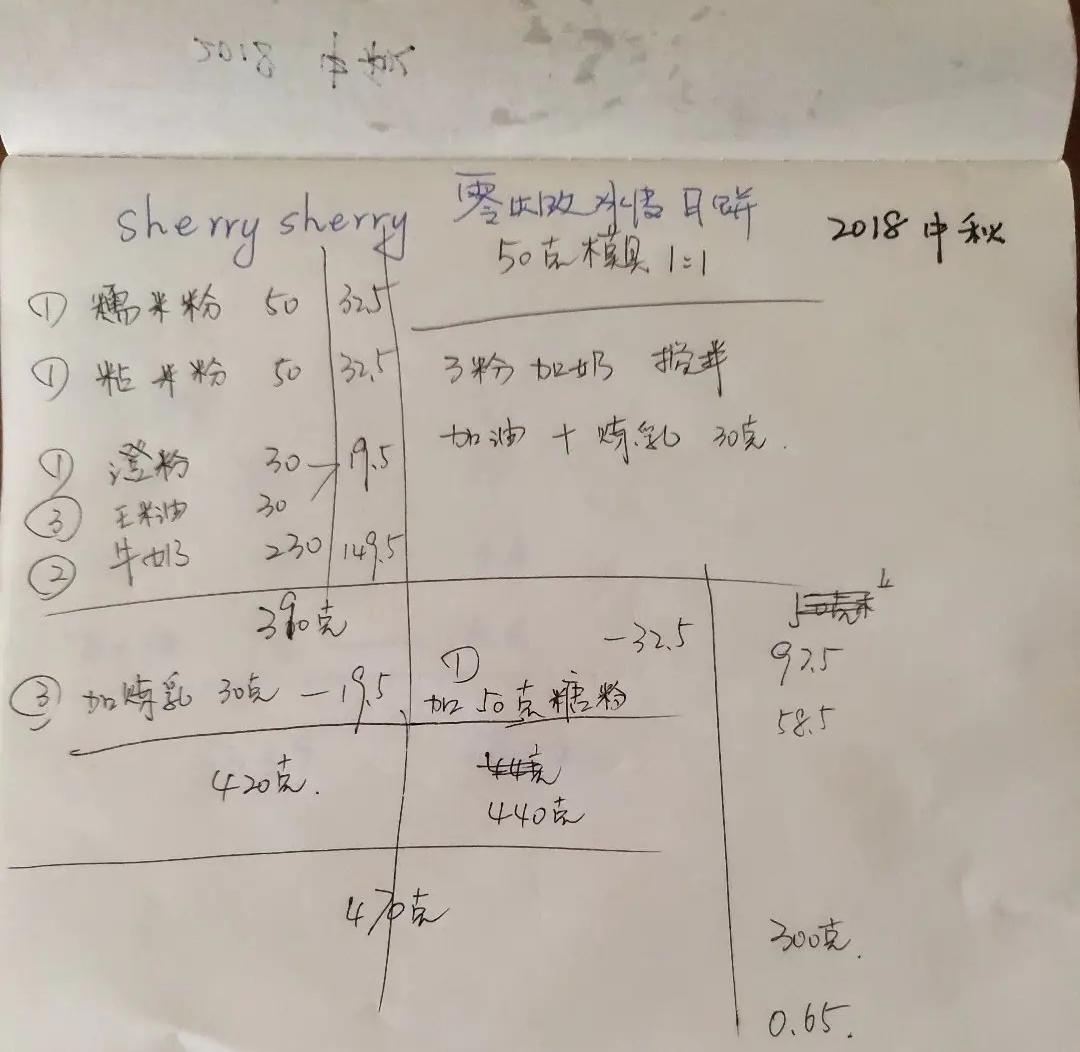 2018 中秋
sherry sherry 零失败冰皮月饼 2018 中秋
50克模具 1:1
① 糯米粉 50 32.5
① 粘米粉 50 32.5
3粉加奶 搅拌
加油 + 炼乳 30克.
① 澄粉 30 19.5
③ 玉米油 30
② 牛奶 230 149.5
390克
③ 加炼乳 30克 - 19.5
① -32.5
加50克糖粉
97.5
58.5
420克.
440克
470克
300克.
0.65.